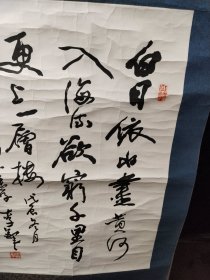 白日依山盡黄河
入海流欲窮千里目
更上一層樓